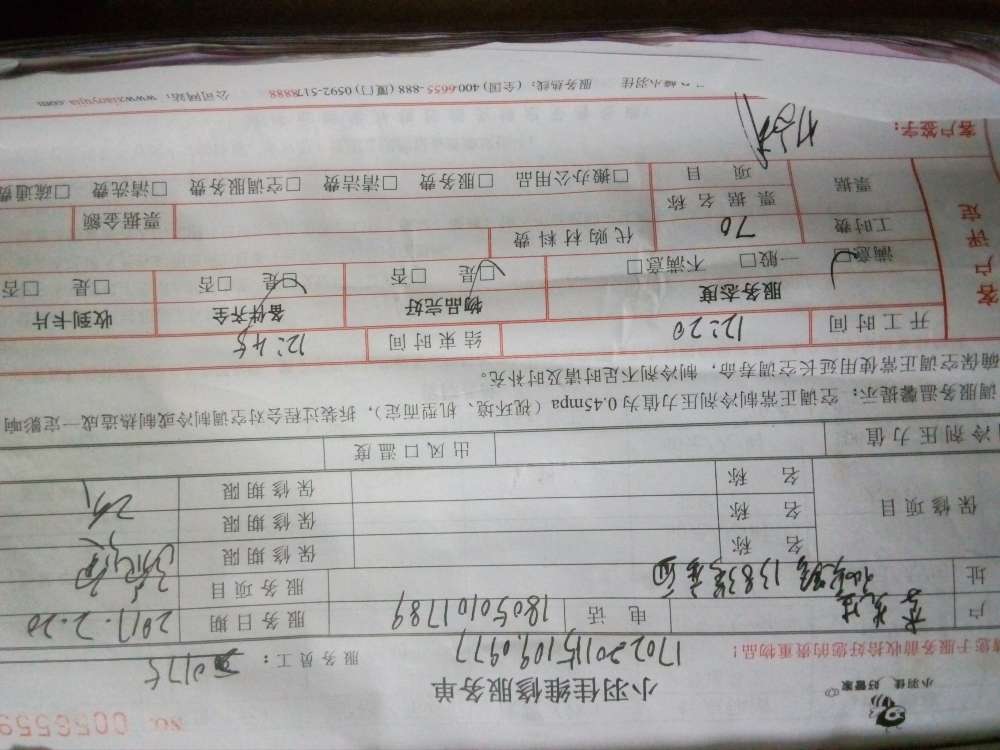 NO. 0056559
小羽佳 好管家
小羽佳维修服务单
请您于服务前收拾好您的贵重物品！
服务员工：
户
电话 18050101789
服务日期 2017.2.20
址
服务项目
保修项目
名称 保修期限
名称 保修期限
名称 保修期限
冷剂压力值 出风口温度
调服务温馨提示：空调正常制冷剂压力值为0.45mpa（视环境、机型而定），拆装过程会对空调制冷或制热造成一定影响
确保空调正常使用延长空调寿命，制冷剂不足时请及时补充。
开工时间 12:20 结束时间 12:45
客户评定
服务态度 物品完好 备件齐全 收到卡片
满意□ 一般□ 不满意□ □是 □否 □是 □否 □是 □否
工时费 70 代购材料费
票据 票据名称 票据金额
项目 □搬办公用品 □服务费 □清洁费 □空调服务费 □清洗费 □疏通费
客户签字：
小羽佳 服务热线：（全国）400-6655-888（厦门）0592-5178888 公司网站：www.xiaoyujia.com